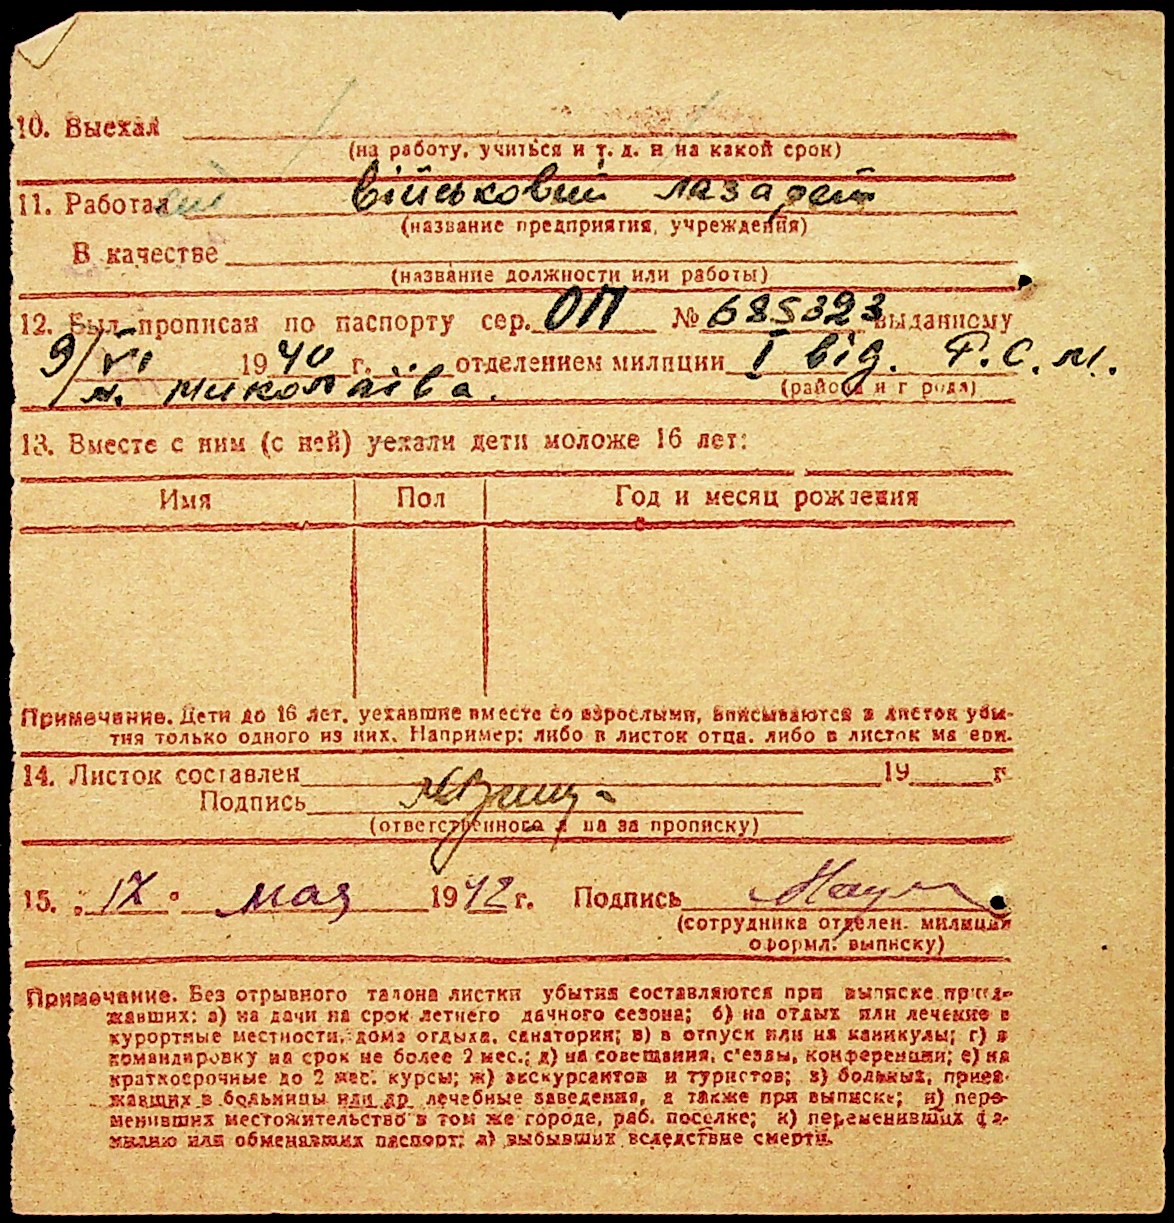 10. Выехал
(на работу, учиться и т. д. и на какой срок)
11. Работал військовий лазарет
(название предприятия, учреждения)
В качестве
(название должности или работы)
12. Был прописан по паспорту сер. ОП № 685323 выданному
9/VI 1940 г. отделением милиции І від. Р.С.М.
(района и г рода)
м. Миколаїва.
13. Вместе с ним (с ней) уехали дети моложе 16 лет:
Имя Пол Год и месяц рождения
Примечание. Дети до 16 лет, уехавшие вместе со взрослыми, вписываются в листок убы-
тия только одного из них. Например: либо в листок отца, либо в листок ма ери.
14. Листок составлен 19 г
Подпись
(ответственного л ца за прописку)
15. „IX" мая 1942 г. Подпись
(сотрудника отделен. милиции
оформл. выписку)
Примечание. Без отрывного талона листки убытия составляются при выписке приез-
жавших: а) на дачи на срок летнего дачного сезона; б) на отдых или лечение в
курортные местности, дома отдыха, санатории; в) в отпуск или на каникулы; г) в
командировку на срок не более 2 мес.; д) на совещания, с'езды, конференции; е) на
краткосрочные до 2 мес. курсы; ж) экскурсантов и туристов; з) больных, приез-
жавших в больницы или др лечебные заведения, а также при выписке; и) пере-
менивших местожительство в том же городе, раб. поселке; к) переменивших фа-
милию или обменявших паспорт; л) выбывших вследствие смерти.